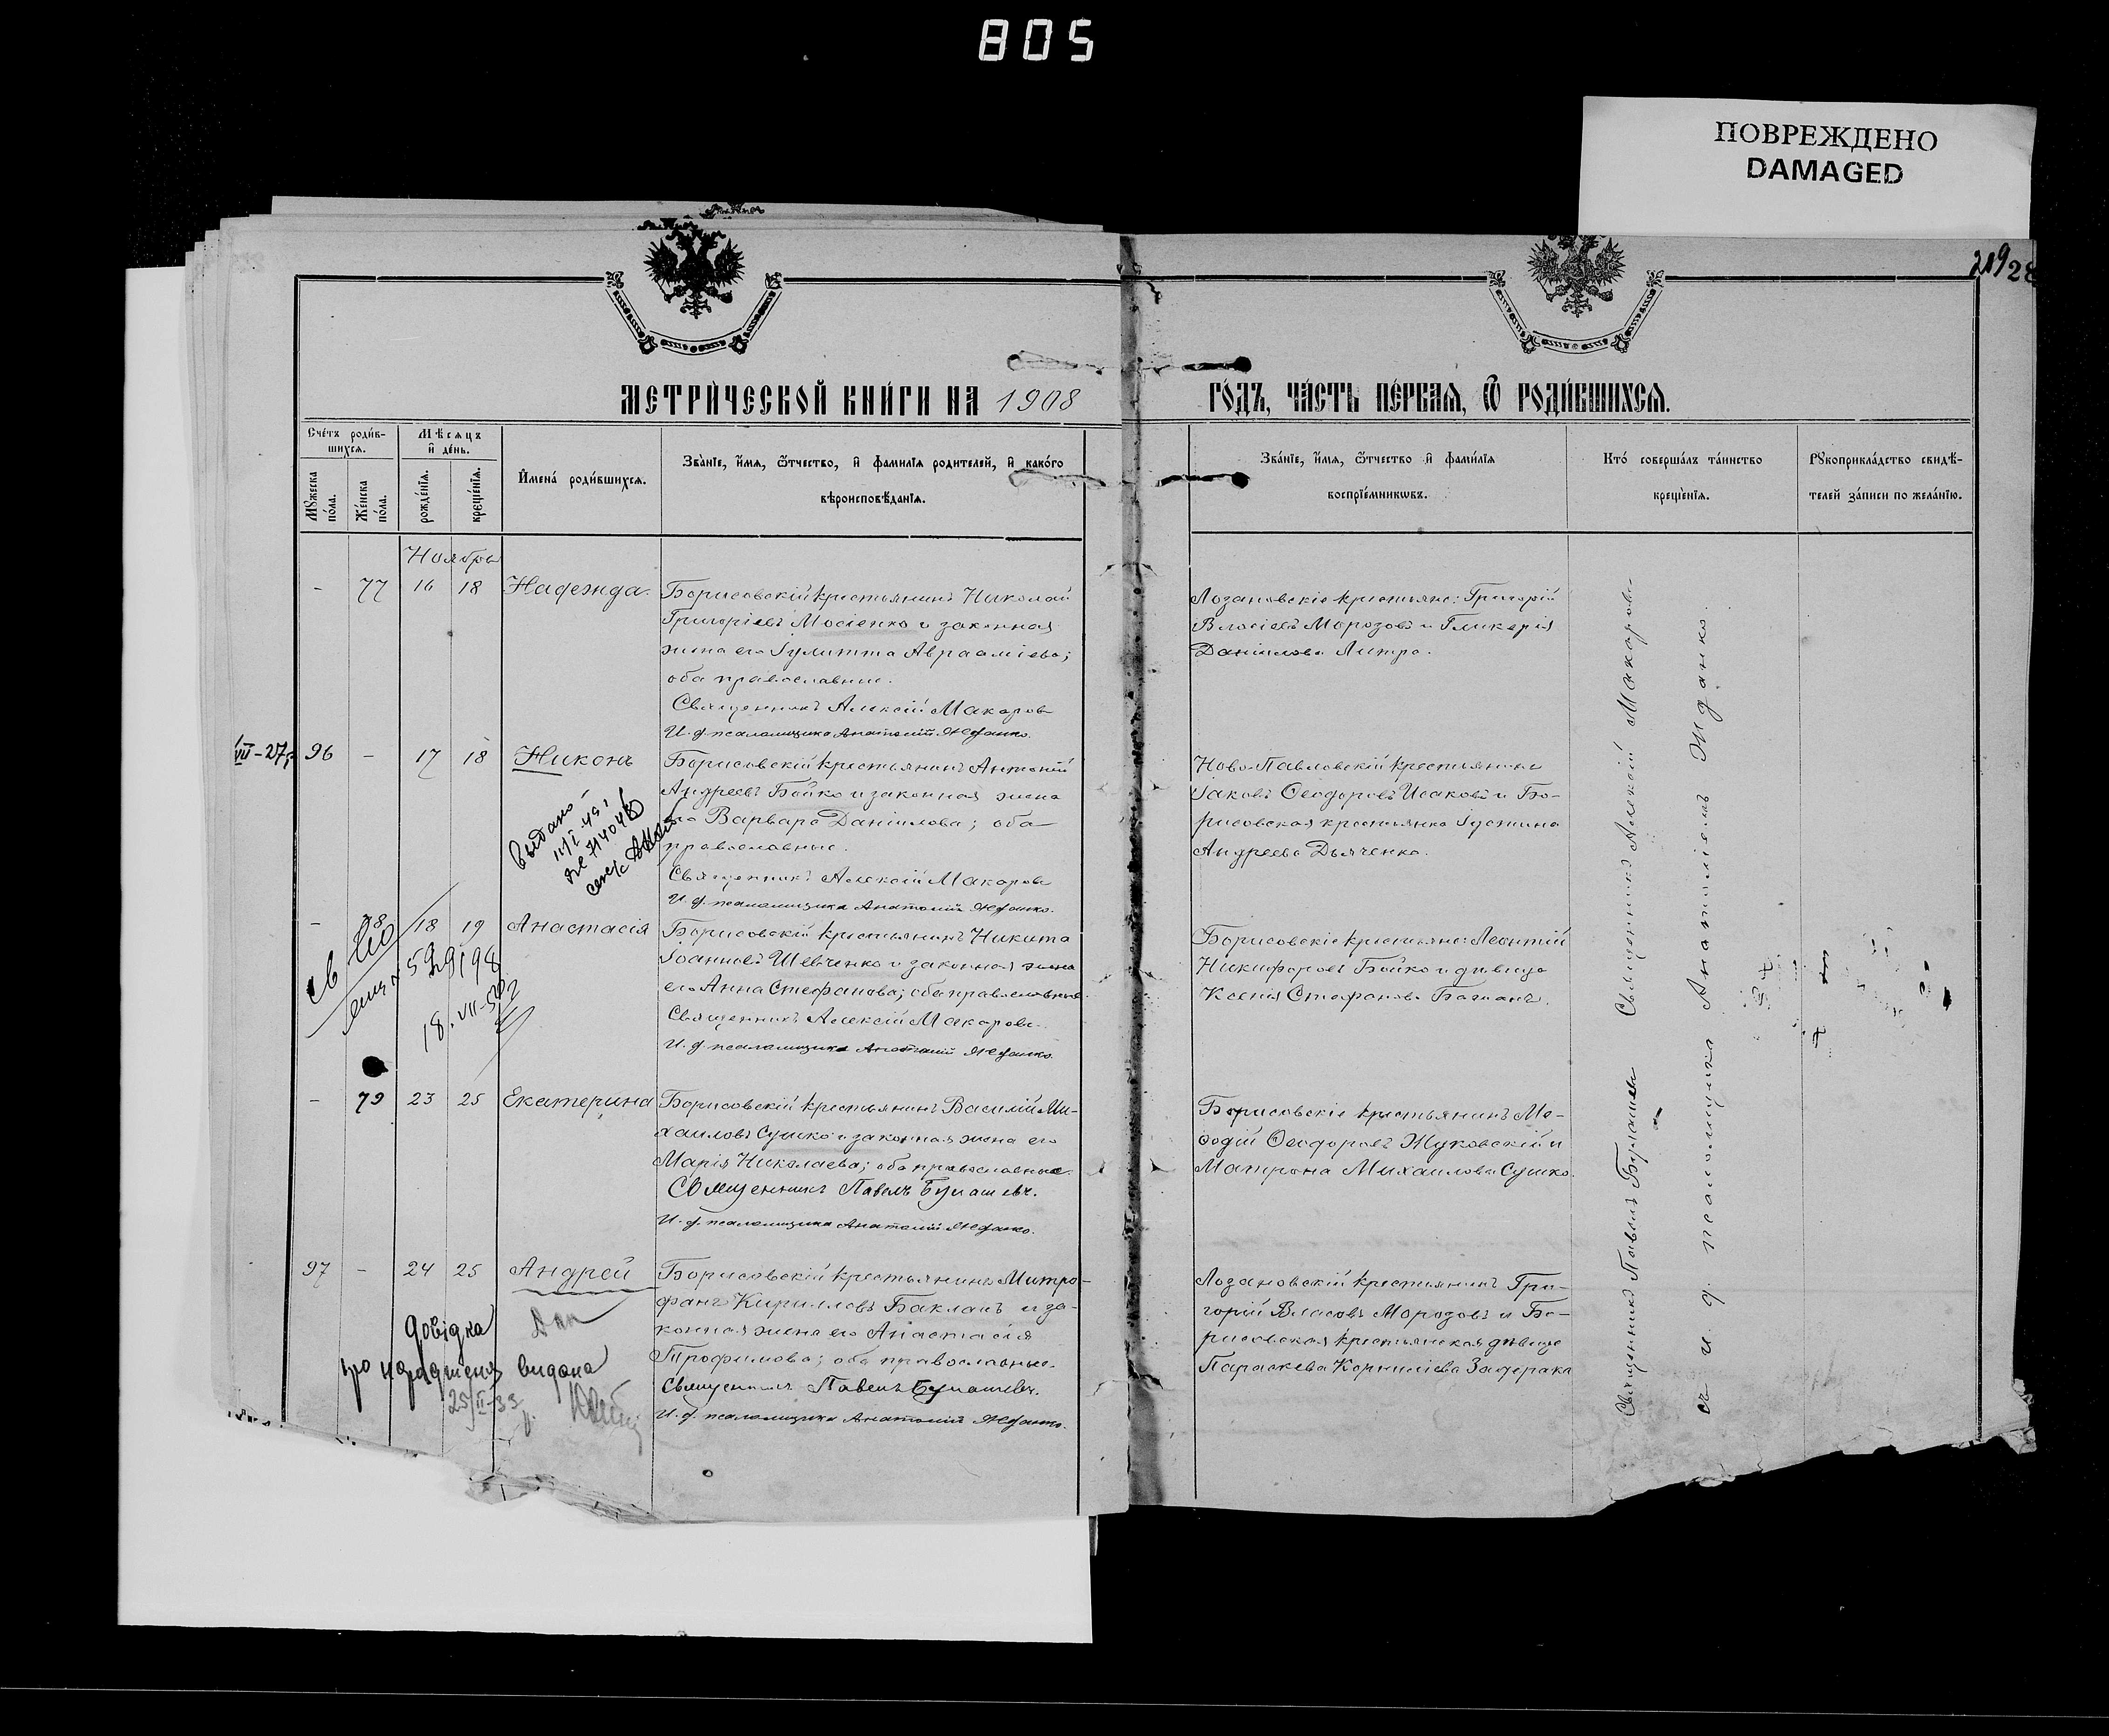 805
ПОВРЕЖДЕНО
DAMAGED
219
МЕТРИЧЕСКОЙ КНИГИ НА 1908 ГОДЪ, ЧАСТЬ ПЕРВАЯ, Ѿ РОДИВШИХСЯ.
Счетъ родив-
шихся.
Мѣсяцъ
и день.
Мужеска
пола.
Женска
пола.
рожденія.
крещенія.
Имена родившихся.
Званіе, имя, ѿтчество, и фамилія родителей, и какого
вѣроисповѣданія.
Званіе, имя, ѿтчество и фамилія
воспріемникѡвъ.
Кто совершалъ таинство
крещенія.
Рукоприкладство свидѣ-
телей записи по желанію.
Ноябрь
- 77 16 18 Надежда.
Борисовскій крестьянинъ Николай
Григоріевъ Мосіенко и законная
жена его Іулитта Авраамiева;
оба православные.
Священникъ Алексій Макаровъ
И. д. псаломщика Анатолій Жданко.
Лозановскіе крестьяне: Григорій
Власіевъ Морозовъ и Гликерія
Даніилова Литра.
VII-27 96 - 17 18 Никонъ
Борисовскій крестьянинъ Антоній
Андреевъ Бойко и законная жена
его Варвара Даніилова; оба
православные.
Священникъ Алексій Макаровъ
И. д. псаломщика Анатолій Жданко.
Выдано
Ново-Павловскій крестьянинъ
Іаковъ Ѳеодоровъ Исаковъ и Бо-
рисовская крестьянка Іустина
Андреева Дьяченко.
- 78 18 19 Анастасія
Борисовскій крестьянинъ Никита
Іоанновъ Шевченко и законная жена
его Анна Стефанова; оба православные.
Священникъ Алексій Макаровъ.
И. д. псаломщика Анатолій Жданко.
529198
18.VII-
Борисовскіе крестьяне: Леонтій
Никифоровъ Бойко и дѣвица
Ксенія Стефанова Баглай.
- 79 23 25 Екатерина
Борисовскій крестьянинъ Василій Ми-
хаиловъ Сушко и законная жена его
Марія Николаева; оба православные.
Священникъ Павелъ Булашевъ.
И. д. псаломщика Анатолій Жданко.
Борисовскіе крестьянинъ Ме-
ѳодій Ѳеодоровъ Жуковскій и
Матрона Михаилова Сушко.
97 - 24 25 Андрей
Борисовскій крестьянинъ Митро-
фанъ Кирилловъ Бакланъ и за-
конная жена его Анастасія
Трофимова; оба православные.
Священникъ Павелъ Булашевъ.
И. д. псаломщика Анатолій Жданко.
довідка
про народження видана
25/II-33 р.
Лозановскій крестьянинъ Гри-
горій Власовъ Морозовъ и Бо-
рисовская крестьянская дѣвица
Параскева Корниліева Задерака
Священникъ Павелъ Булашевъ Священникъ Алексій Макаровъ
съ и. д. псаломщика Анатоліемъ Жданко.